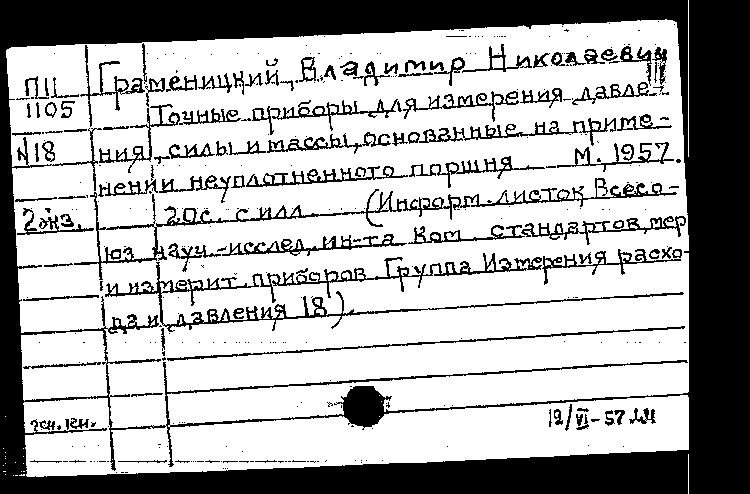 П11 Граменицкий, Владимир Николаевич
1105 Точные приборы для измерения давле-
№18 ния, силы и массы, основанные на приме-
нении неуплотненного поршня. М., 1957.
2 экз. 20с. с илл. (Информ. листок Всесо-
юз науч.-исслед. ин-та Ком. стандартов, мер
и измерит. приборов. Группа Измерения расхо-
да и давления 18).
12/VI-57